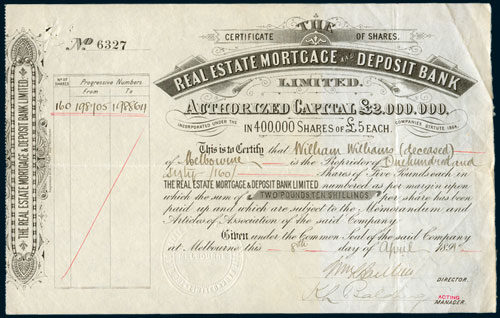 THE
CERTIFICATE OF SHARES.
No 6327
REAL ESTATE MORTGAGE AND DEPOSIT BANK
LIMITED.
AUTHORIZED CAPITAL £2.000.000.
INCORPORATED UNDER THE COMPANIES STATUTE, 1864.
IN 400,000 SHARES OF £5 EACH.
No OF SHARES
Progressive Numbers
From To
160 198705 198864
THE REAL ESTATE MORTGAGE & DEPOSIT BANK LIMITED
This is to Certify that William Williams (deceased)
of Melbourne is the Proprietor of One hundred and
sixty /160/ Shares of Five Pounds each in
THE REAL ESTATE MORTGAGE & DEPOSIT BANK LIMITED numbered as per margin upon
which the sum of TWO POUNDS TEN SHILLINGS per share has been
paid up and which are subject to the Memorandum and
Articles of Association of the said Company.
Given under the Common Seal of the said Company
at Melbourne this 8th day of April
DIRECTOR.
ACTING
MANAGER.